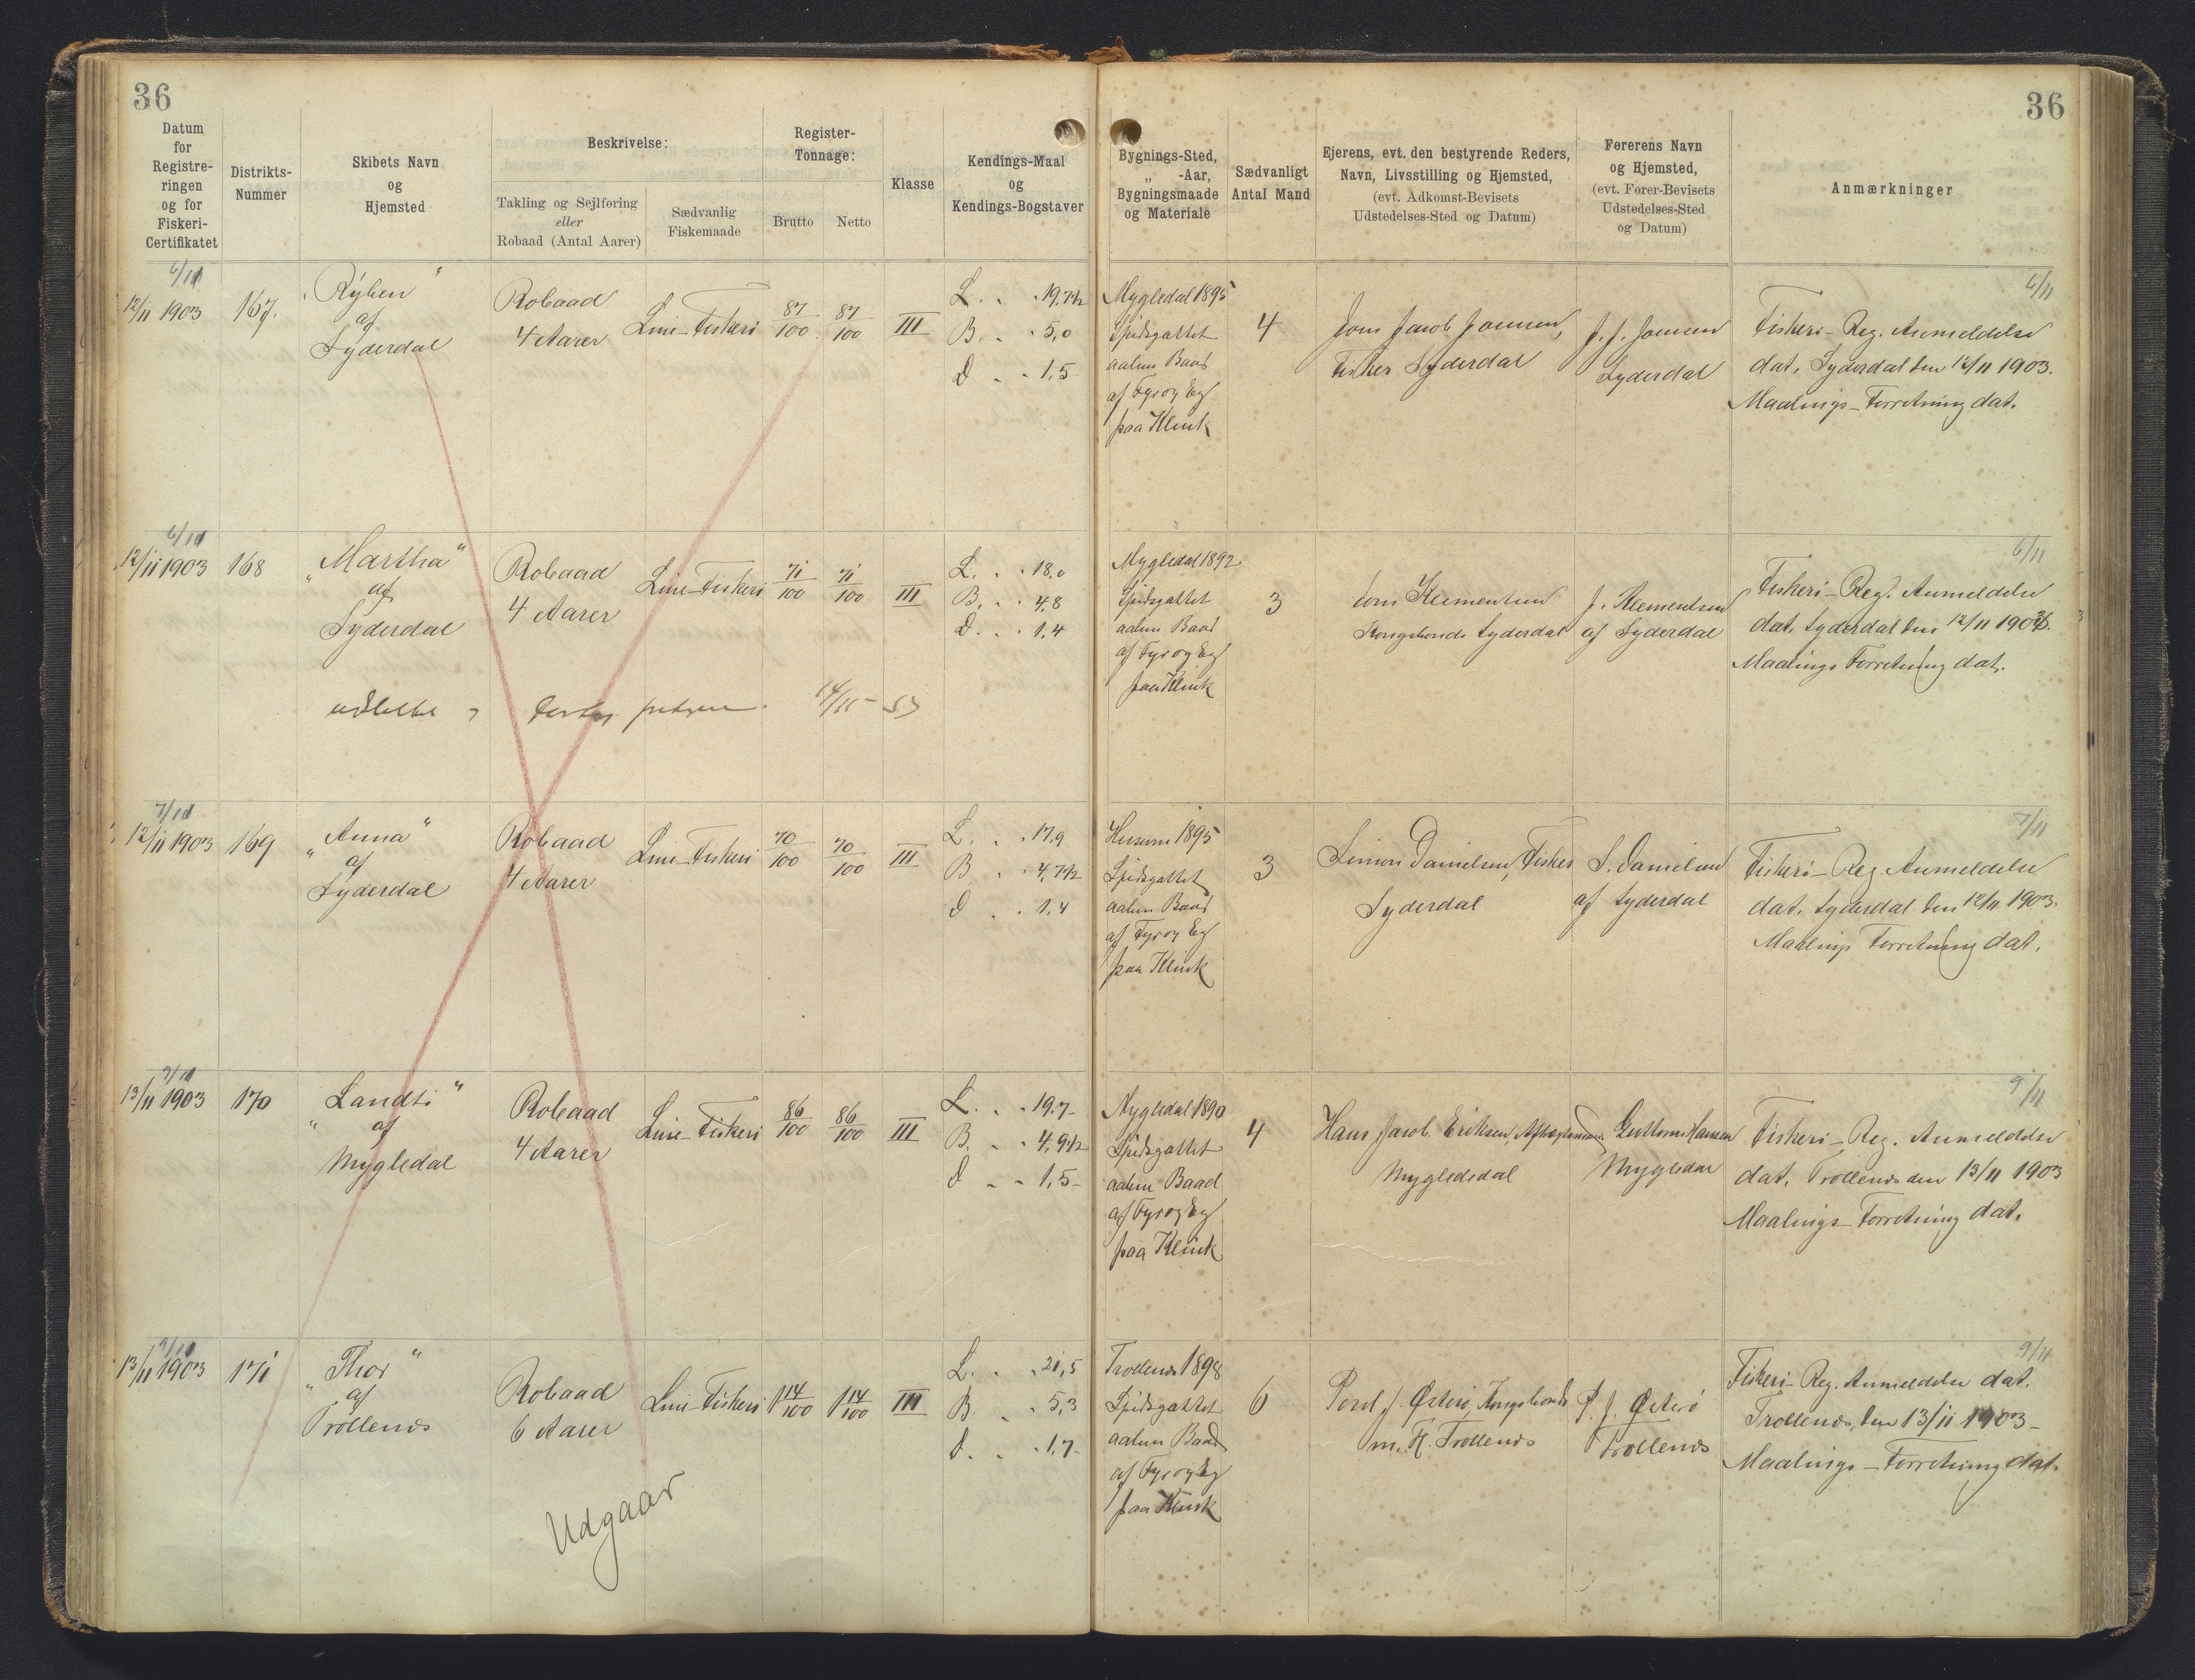 36
36
Datum
for
Registre-
ringen
og for
Fiskeri-
Certifikatet
Distrikts-
Nummer
Skibets Navn
og
Hjemsted
Beskrivelse:
Takling og Sejlføring
eller
Robaad (Antal Aarer)
Sædvanlig
Fiskemaade
Register-
Tonnage:
Brutto
Netto
Klasse
Kendings-Maal
og
Kendings-Bogstaver
Bygnings-Sted,
„ -Aar,
Bygningsmaade
og Materiale
Sædvanligt
Antal Mand
Ejerens, evt. den bestyrende Reders,
Navn, Livsstilling og Hjemsted,
(evt. Adkomst-Bevisets
Udstedelses-Sted og Datum)
Førerens Navn
og Hjemsted,
(evt. Fører-Bevisets
Udstedelses-Sted
og Datum)
Anmærkninger
6/11
12/11 1903
167.
af
Syderdal
Robaad
4 Aarer
Line-Fiskeri
87/100
87/100
III
L. . . 19,7½
B. . . 5,0
D . . 1,5
Mygledal 1895
Spidsgattet
aaben Baad
af Fyr og Eg
paa Klink
4
Joen Jacob Joensen,
Fisker Syderdal
J. J. Joensen
Syderdal
6/11
Fiskeri-Reg. Anmeldelse
dat. Syderdal den 12/11 1903.
Maalings-Forretning dat.
6/11
12/11 1903
168
„Martha“
af
Syderdal
Robaad
4 Aarer
Line-Fiskeri
71/100
71/100
III
L. . . 18,0
B. . . 4,8
D. . . 1,4
Mygledal 1892
Spidsgattet
aaben Baad
af Fyr og Eg
paa Klink
3
Klementsen
Kongsbonde Syderdal
J. Klementsen
af Syderdal
6/11
Fiskeri-Reg. Anmeldelse
dat. Syderdal den 12/11 1903.
Maalings Forretning dat.
7/11
12/11 1903
169
„Anna“
af
Syderdal
Robaad
4 Aarer
Line-Fiskeri
70/100
70/100
III
L. . . 17,9
B . . 4,7½
D . . 1,4
Husum 1895
Spidsgattet
aaben Baad
af Fyr og Eg
paa Klink
3
Simon Danielsen, Fisker
Syderdal
S. Danielsen
af Syderdal
7/11
Fiskeri-Reg. Anmeldelse
dat. Syderdal den 12/11 1903.
Maalings Forretning dat.
9/11
13/11 1903
170
„Landti“
af
Mygledal
Robaad
4 Aarer
Line-Fiskeri
86/100
86/100
III
L. . . 19,7
B. . . 4,9½
D . . 1,5
Mygledal 1890
Spidsgattet
aaben Baad
af Fyr og Eg
paa Klink
4
Hans Jacob Eriksen, Aftægtsmand
Mygledal
Guttorm Hansen
Mygledal
9/11
Fiskeri-Reg. Anmeldelse
dat. Trøllenæs den 13/11 1903
Maalings-Forretning dat.
9/11
13/11 1903
171
„Thor“
af
Trøllenæs
Robaad
6 Aarer
Line-Fiskeri
1 14/100
1 14/100
III
L. . . 21,5
B. . . 5,3
D. . . 1,7
Trøllenæs 1898
Spidsgattet
aaben Baad
af Fyr og Eg
paa Klink
6
J. Østerø, Kongsbonde
m. H. Trøllenæs
P. J. Østerø
Trøllenæs
9/11
Fiskeri-Reg. Anmeldelse dat.
Trøllenæs, den 13/11 1903
Maalings-Forretning dat.
Udgaar